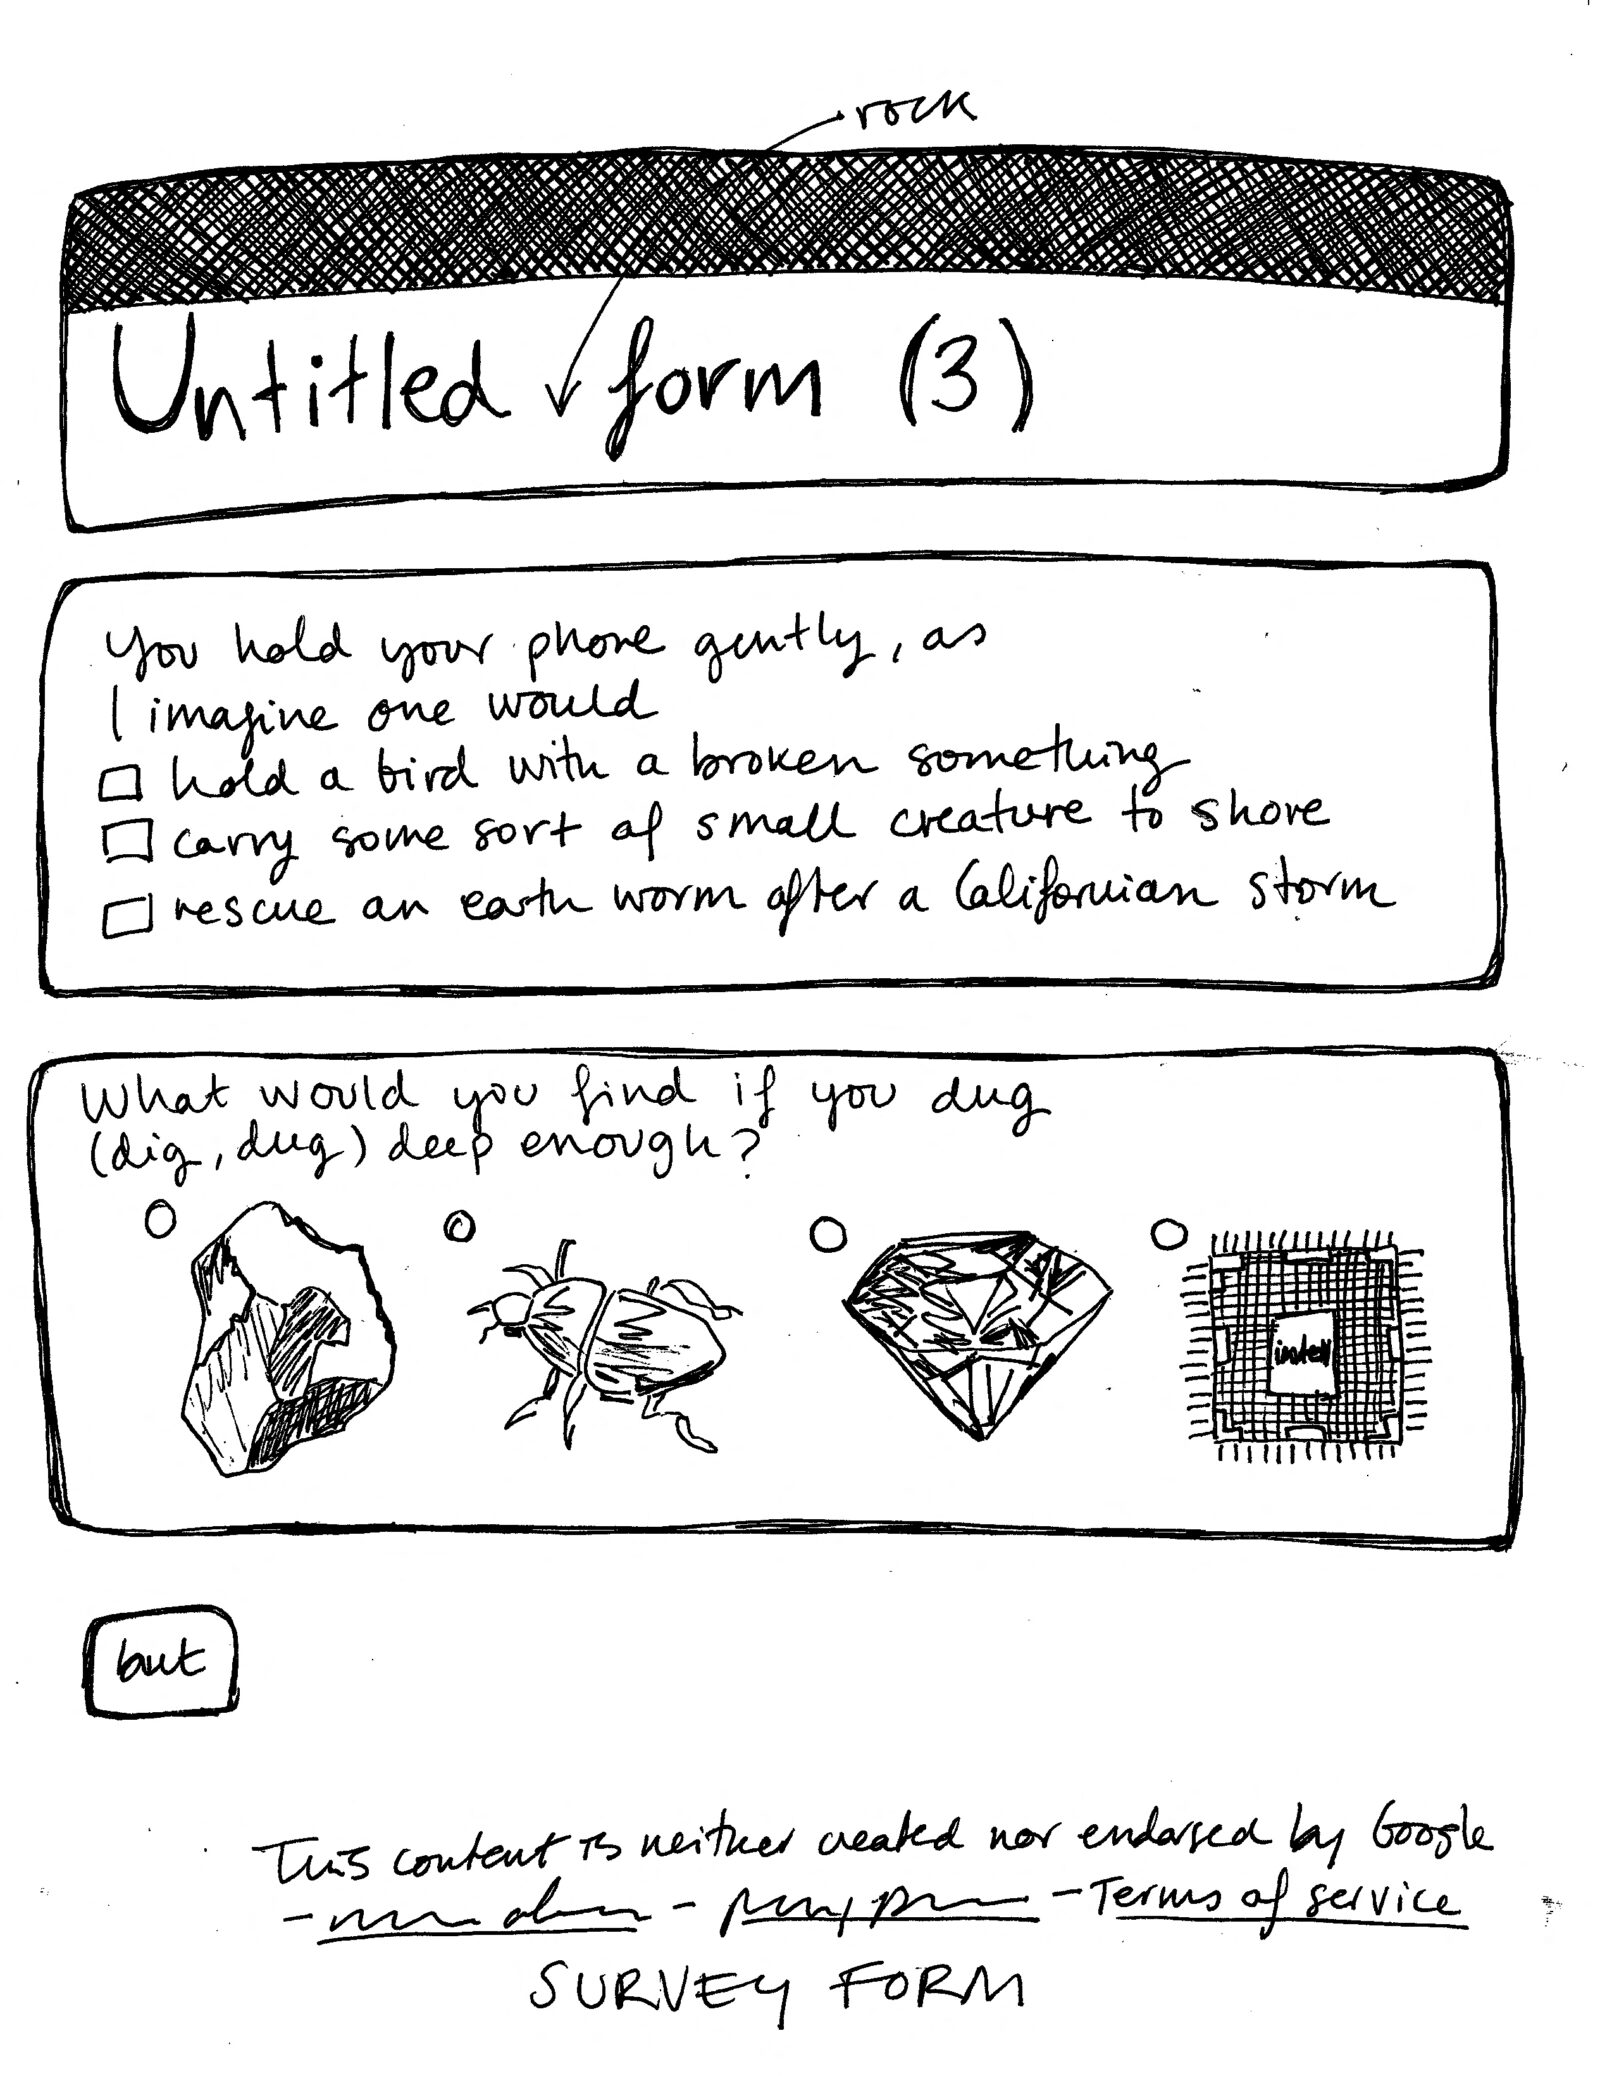 rock
Untitled form (3)
You hold your phone gently, as
I imagine one would
hold a bird with a broken something
carry some sort of small creature to shore
rescue an earth worm after a Californian storm
What would you find if you dug
(dig, dug) deep enough?
intel
but
This content is neither created nor endorsed by Google
- - - Terms of service
SURVEY FORM